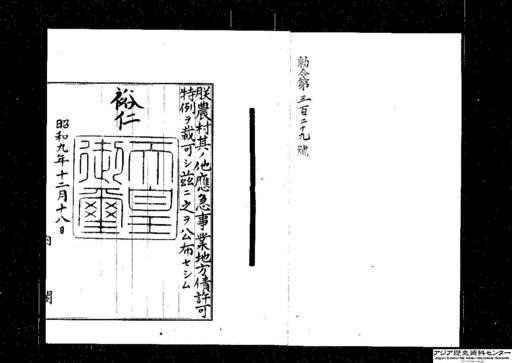 勅令第三百二十九號
朕農村其ノ他應急事業地方債許可
特例ヲ裁可シ茲ニ之ヲ公布セシム
裕仁
天皇
御璽
昭和九年十二月十八日
内閣
アジア歴史資料センター
Japan Center for Asian Historical Records